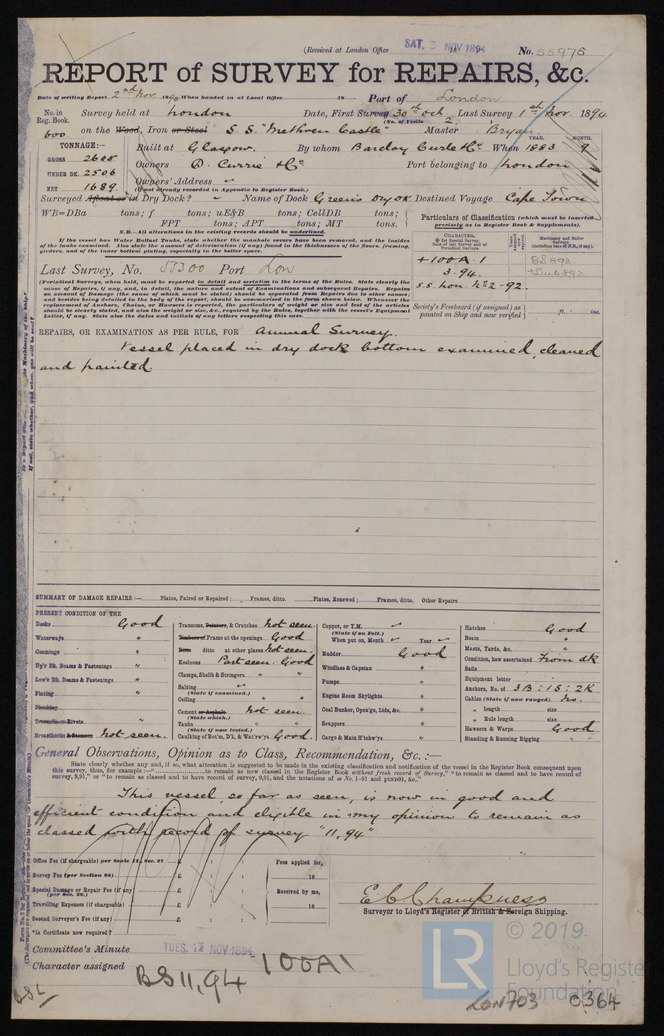 (Received at London Office SAT. 3 NOV 1894 No. 55975
REPORT of SURVEY for REPAIRS, &c.
Date of writing Report 2nd Nov. 1890 When handed in at Local Office 18 Port of London
No. in Reg. Book. Survey held at London Date, First Survey 30th Oct. Last Survey 1st Nov. 1894
(No. of Visits 2)
600 on the Wood, Iron or Steel S.S. "Methven Castle" Master Bryan
TONNAGE:— Built at Glasgow. By whom Barclay Curle & Co When 1883 YEAR. MONTH. 9
GROSS 2665 Owners D. Currie & Co Port belonging to London
UNDER DK. 2506 Owners' Address
NET 1689 (If not already recorded in Appendix to Register Book.)
Surveyed Afloat or in Dry Dock? Name of Dock Green's Dry Dk Destined Voyage Cape Town
WB=DBa tons; f tons; uE&B tons; CellDB tons;
FPT tons; APT tons; MT tons.
N.B.—All alterations in the existing records should be underlined.
If the vessel has Water Ballast Tanks, state whether the manhole covers have been removed, and the insides of the tanks examined. Also state the amount of deterioration (if any) found in the thicknesses of the floors, framing, girders, and of the inner bottom plating, especially in the boiler space.
Particulars of Classification (which must be inserted precisely as in Register Book & Supplements).
CHARACTERS. Machinery and Boiler Surveys (including date of N.B., if any).
+100A.1
3-94.
S.S. Lon. No2-92.
BS 8,93
Society's Freeboard (if assigned) as painted on Ship and now verified ft. ins.
Last Survey, No. 55300 Port Lon
(Periodical Surveys, when held, must be reported in detail and seriatim in the terms of the Rules. State clearly the cause of Repairs, if any, and, in detail, the nature and extent of Examinations and subsequent Repairs. Repairs on account of Damage (the cause of which must be stated) should be separated from Repairs due to other causes, and besides being detailed in the body of the report, should be summarised in the form shown below. Whenever the replacement of Anchors, Chains, or Hawsers is reported, the particulars of weight or size and test of the articles should be clearly stated, and also the weight or size, &c., required by the Rules, together with the vessel's Equipment Letter, if any. State also the dates and initials of any letters respecting this case.)
REPAIRS, OR EXAMINATION AS PER RULE, FOR Annual Survey.
Vessel placed in dry dock bottom examined, cleaned
and painted.
SUMMARY OF DAMAGE REPAIRS:— Plates, Faired or Repaired; Frames, ditto. Plates, Renewed; Frames, ditto. Other Repairs
PRESENT CONDITION OF THE
Decks Good
Waterways "
Coamings "
Up'r Dk. Beams & Fastenings "
Low'r Dk. Beams & Fastenings "
Plating "
Planking
Treenails or Rivets "
Breasthooks & Stemson Not seen.
Transoms, Pointers, & Crutches Not seen.
Timbers or Frame at the openings Good
Ditto ditto at other places Not seen.
Keelsons Part seen. Good
Clamps, Shelfs & Stringers " "
Salting "
(State if examined.)
Ceiling " "
Cement or Asphalt Not seen.
(State which.)
Tanks " "
(State if now tested.)
Caulking of Bot'm, D'k, & Wat'rw'ys Good
Copper, or Y.M. "
(State if on Felt.)
When put on, Month " Year "
Rudder Good
Windlass & Capstan "
Pumps "
Engine Room Skylights "
Coal Bunker, Open'gs, Lids, &c. "
Scuppers "
Cargo & Main H'tchw'ys "
Hatches Good
Boats "
Masts, Yards, &c. "
Condition, how ascertained From dk
Sails
Equipment letter
Anchors, No. of 3B : 1S : 2K
Cables (State if now ranged.) No.
" length size
" Rule length size
Hawsers & Warps Good
Standing & Running Rigging "
General Observations, Opinion as to Class, Recommendation, &c.:—
State clearly whether any, and if so, what alteration is suggested to be made in the existing classification and notification of the vessel in the Register Book consequent upon this survey, thus, for example:—" to remain as now classed in the Register Book without fresh record of Survey," "to remain as classed and to have record of survey, 9,91," or "to remain as classed and to have record of survey, 9,91, and the notations of s.s. No. 1-91 and pt.ND91, &c."
This vessel, so far as seen, is now in good and
efficient condition and eligible in my opinion to remain as
classed with record of survey "11,94"
Office Fee (if chargeable) per Scale 11, Sec. 27 £ : : Fees applied for,
Survey Fee (per Section 28) £ : : 18
Special Damage or Repair Fee (if any) £ : : Received by me,
(per Sec. 28.)
Travelling Expenses (if chargeable) £ : : 18
Second Surveyor's Fee (if any) £ : :
*Is Certificate now required?
E C Champness
Surveyor to Lloyd's Register of British & Foreign Shipping.
Committee's Minute TUES. 13 NOV 1894
Character assigned 100A1
BS 11,94
© 2019
LR Lloyd's Register Foundation
LON703 0364